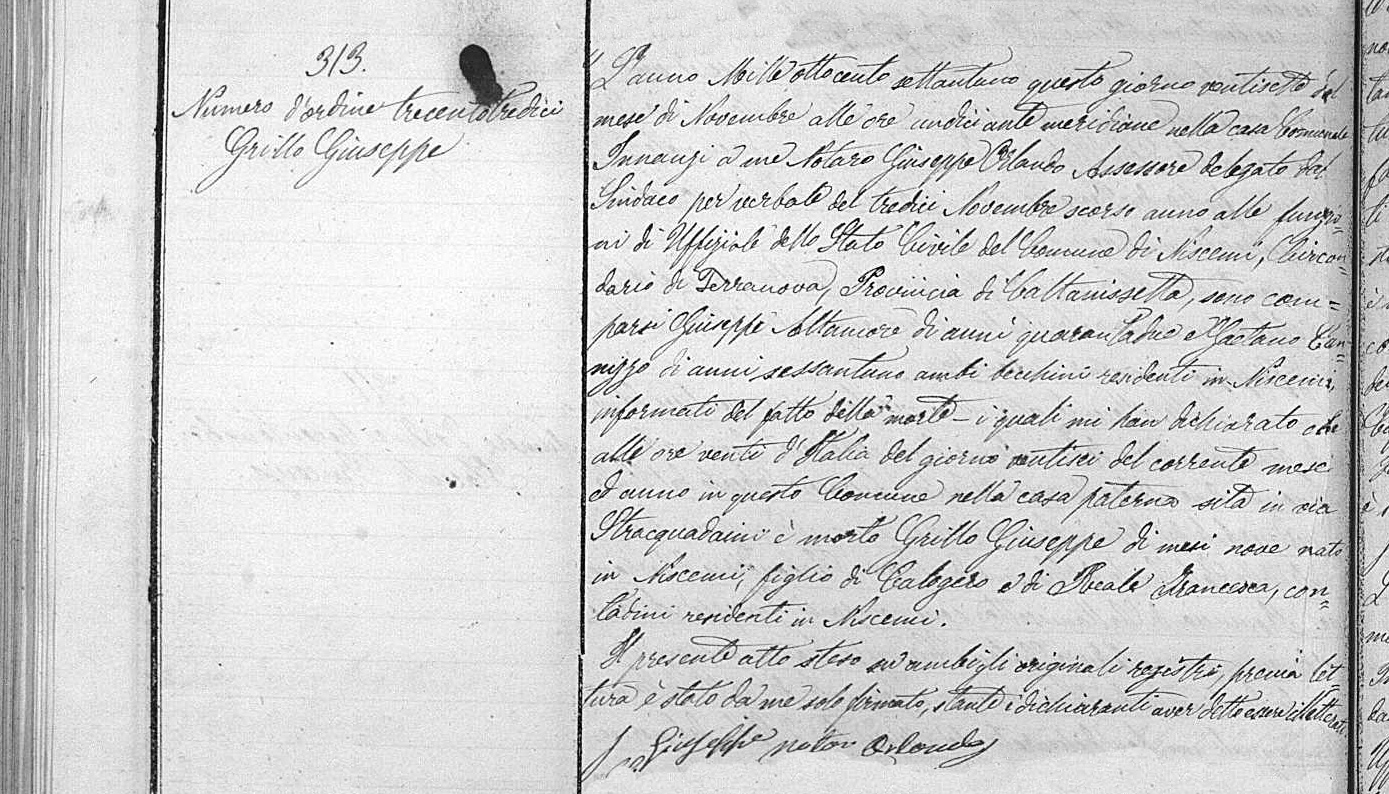 313.
Numero d'ordine trecentotredici
Grillo Giuseppe
L'anno Mille ottocento settantuno questo giorno ventisette del
mese di Novembre alle ore undici ante meridiane nella casa Comunale
Innanzi a me Notaro Giuseppe Orlando Assessore delegato dal
Sindaco per verbale del tredici Novembre scorso anno alle funzio=
ni di Uffiziale dello Stato Civile del Comune di Niscemi, Circon=
dario di Terranova, Provincia di Caltanissetta, sono com=
parsi Giuseppe Altamore di anni quarantadue e Gaetano Can=
nizzo di anni sessantuno ambi becchini residenti in Niscemi,
informati del fatto della morte - i quali mi han dichiarato che
alle ore venti d'Italia del giorno ventisei del corrente mese
ed anno in questo Comune nella casa paterna sita in via
Stracquadaini è morto Grillo Giuseppe di mesi nove nato
in Niscemi, figlio di Calogero e di Reale Francesca, con=
tadini residenti in Niscemi.
Il presente atto steso su ambi gli originali registri, previa let
tura è stato da me solo firmato, stante i dichiaranti aver detto essere illetterati.
Giuseppe notar Orlando